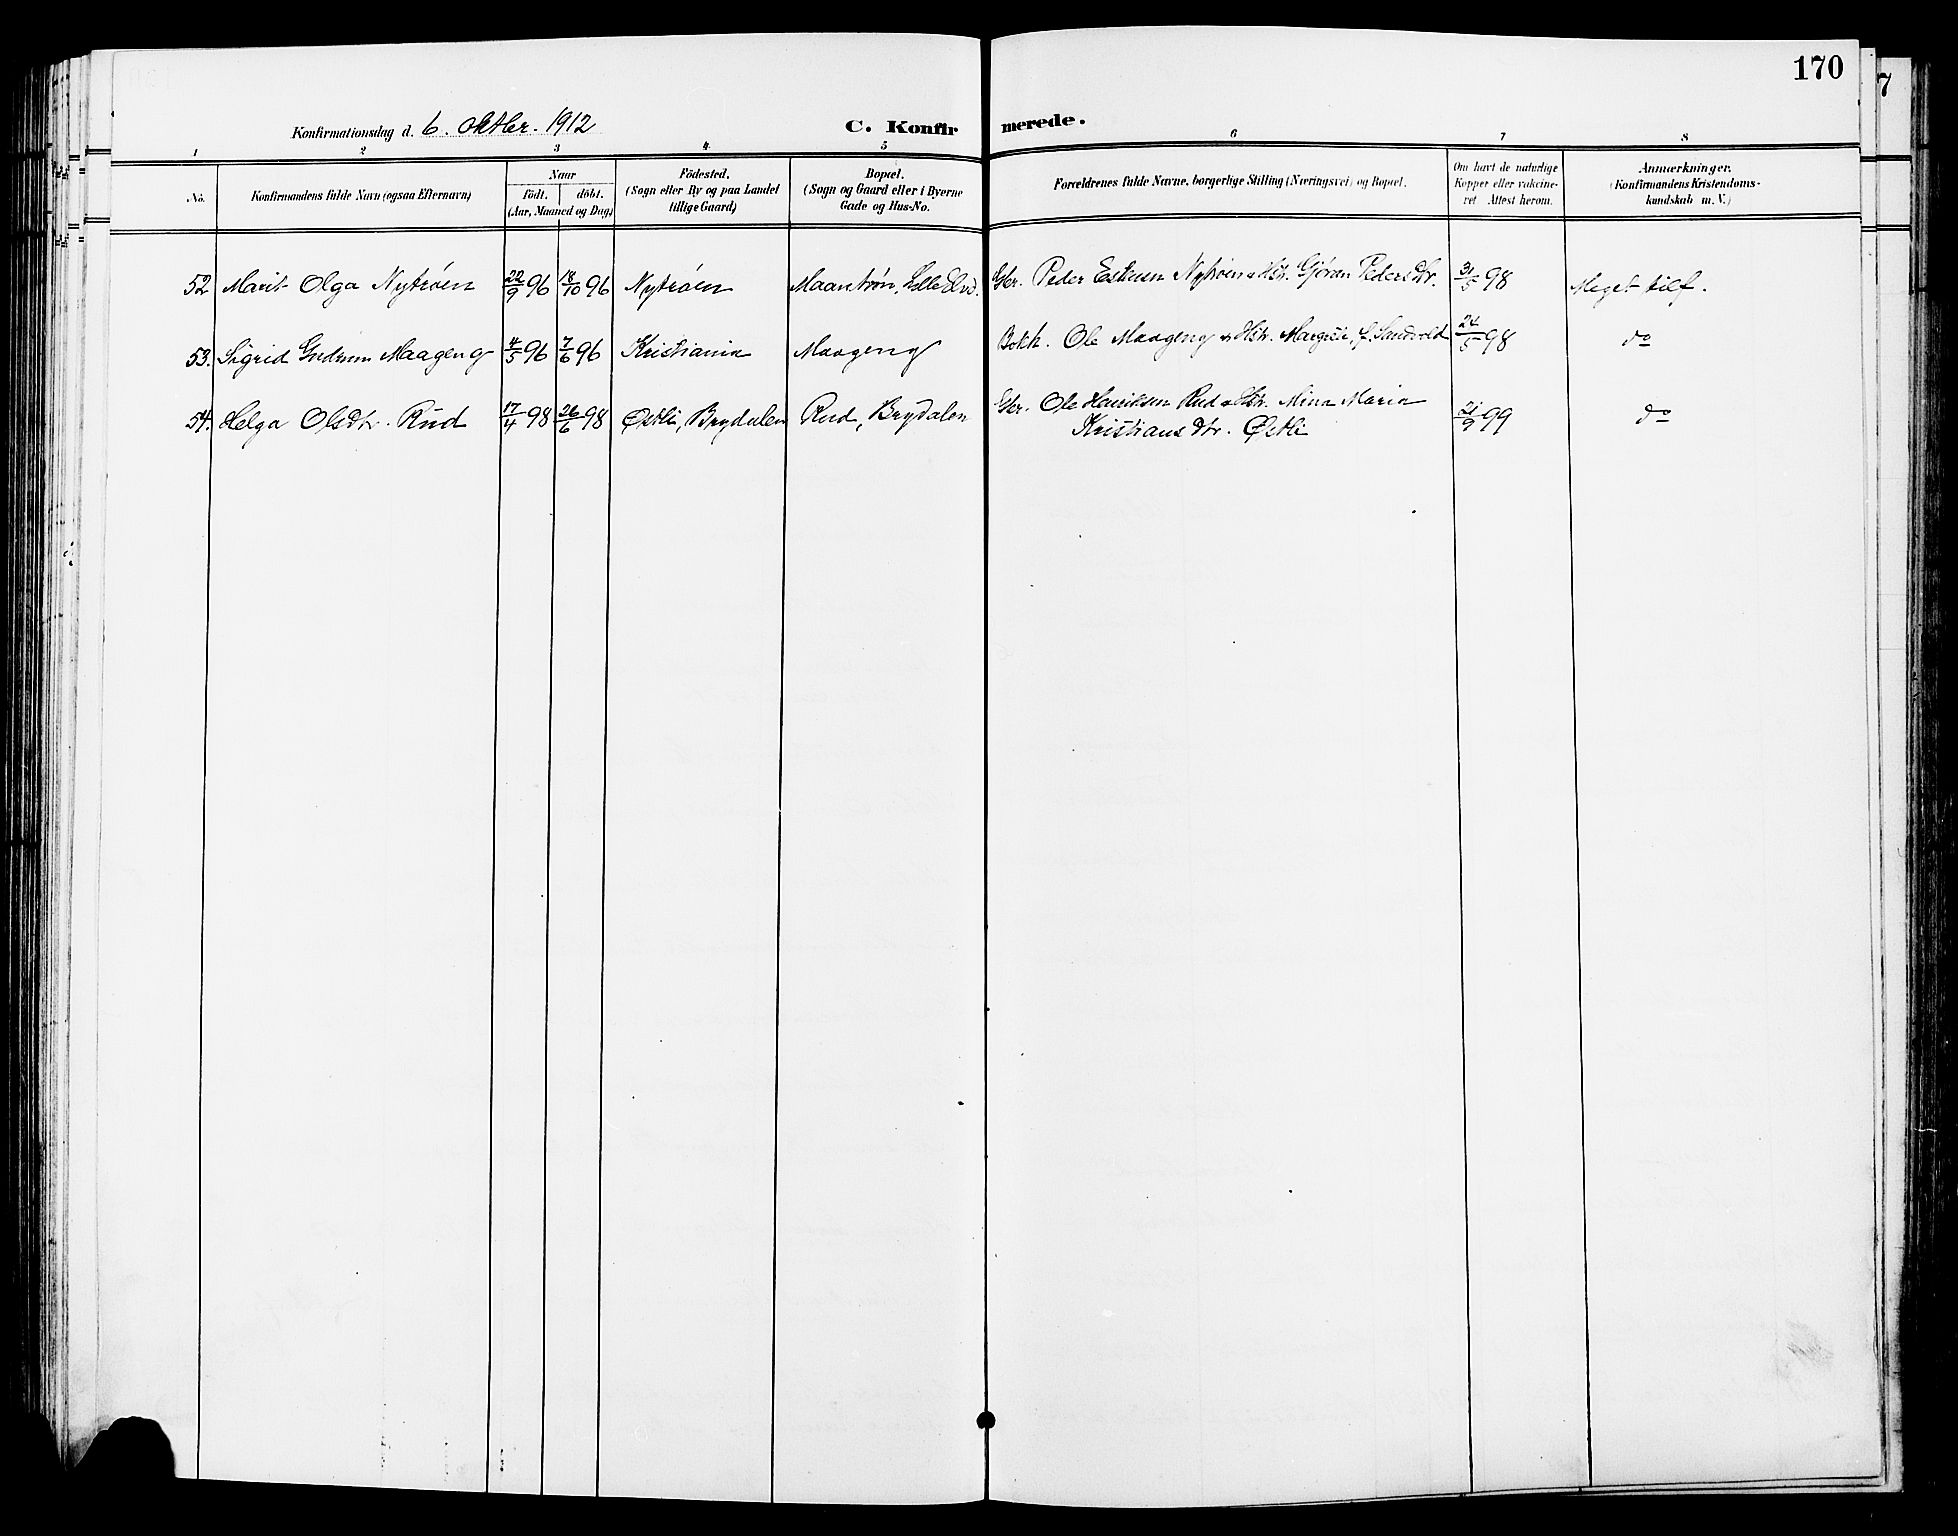 170
7
Konfirmationsdag d. 6. oktbr. 1912
C. Konfirmerede.
1 2 3 4 5 6 7 8
No.
Konfirmandens fulde Navn (ogsaa Efternavn)
Naar
födt. döbt.
(Aar, Maaned og Dag)
Födested.
(Sogn eller By og paa Landet
tillige Gaard)
Bopæl.
(Sogn og Gaard eller i Byerne
Gade og Hus-No.
Forældrenes fulde Navne, borgerlige Stilling (Næringsvei) og Bopæl.
Om havt de naturlige
Kopper eller vakcine-
ret Attest herom.
Anmærkninger.
(Konfirmandens Kristendoms-
kundskab m. V.)
52 Marit Olga Nytrøen 22/9 96 18/10 96 Nytrøen Maantrøn, Lille Elvd. Gbr. Peder Estensen Nytrøen & Hstr. Gjøran Pedersdtr. 31/5 98 Meget tilf.
53. Sigrid Gudrun Maageng 4/5 96 7/6 96 Kristiania Maageng Bokh. Ole Maageng & Hstr. Margit, f. Sandvold 24/5 98 do
54. Helga Olsdtr. Rud 17/4 98 26/6 98 Østli, Brydalen Rud, Brydalen Gbr. Ole Henriksen Rud & Hstr. Mina Maria
Kristiansdtr. Østli 21/9 99 do